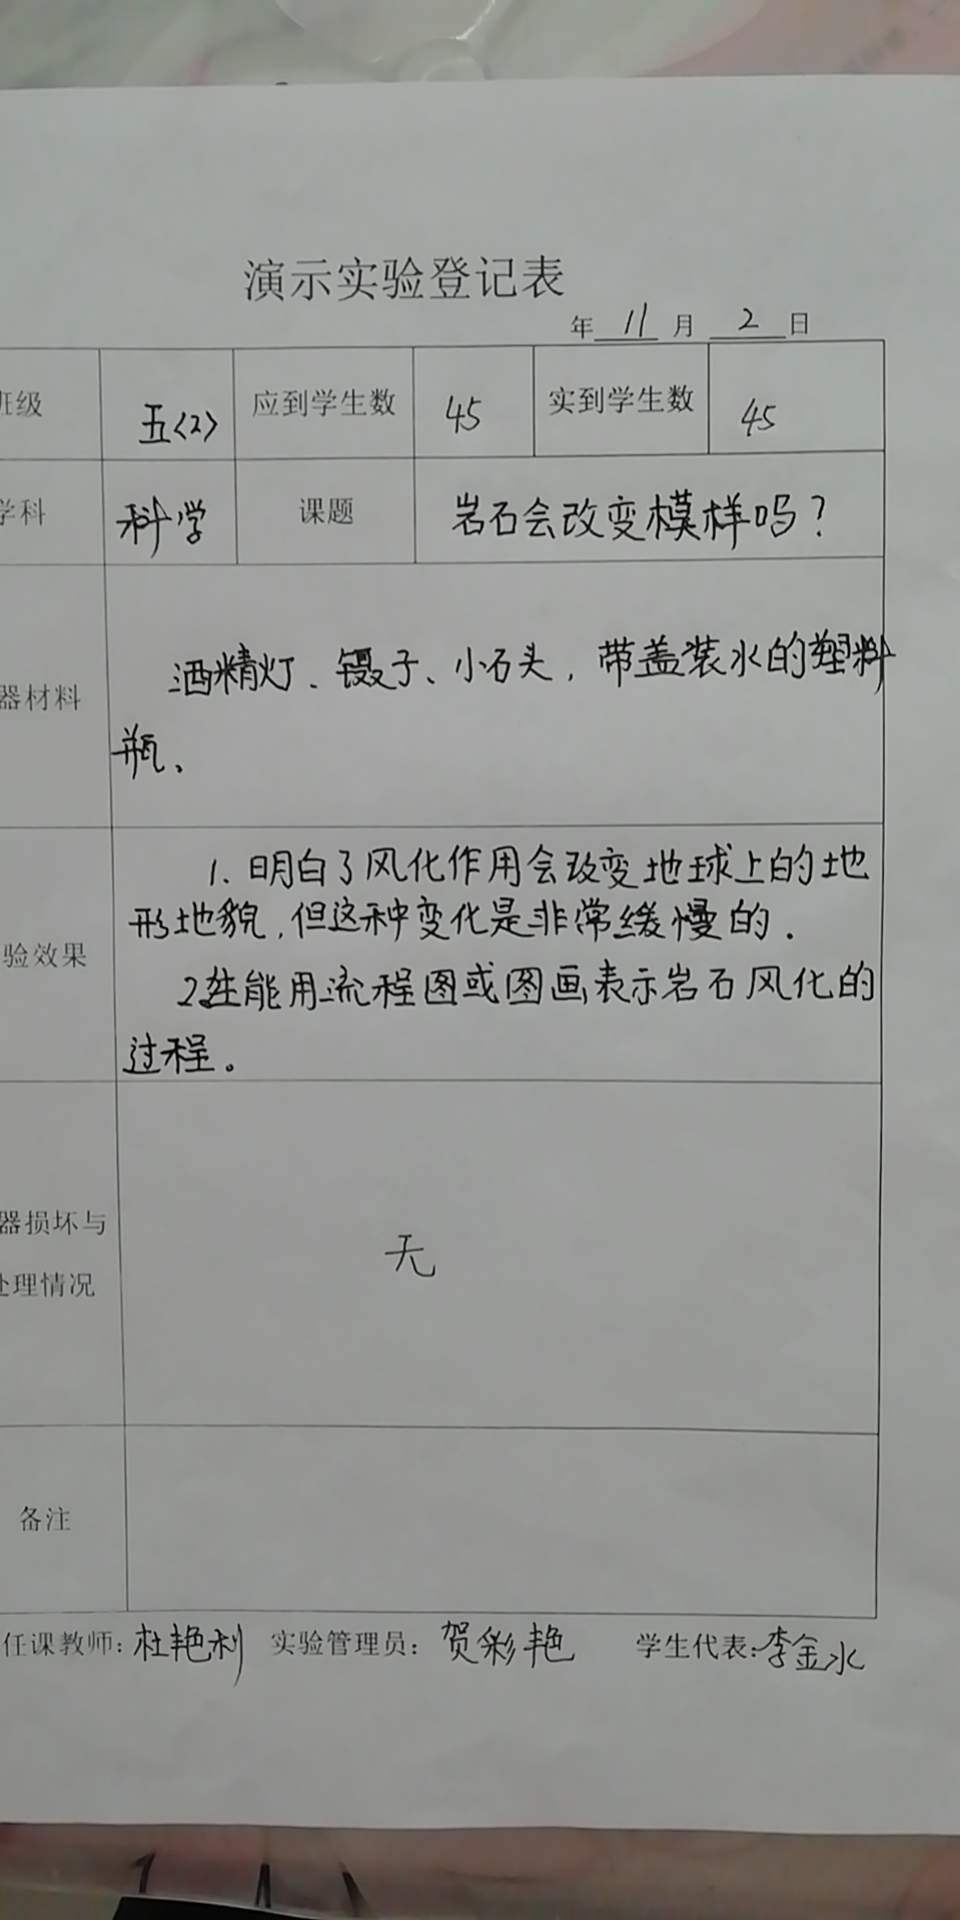 演示实验登记表
年 11 月 2 日
班级 五<2> 应到学生数 45 实到学生数 45
学科 科学 课题 岩石会改变模样吗?
器材料
酒精灯、镊子、小石头,带盖装水的塑料
瓶、
验效果
1. 明白了风化作用会改变地球上的地
形地貌,但这种变化是非常缓慢的.
2.生能用流程图或图画表示岩石风化的
过程。
器损坏与
处理情况
无
备注
任课教师:杜艳利 实验管理员:贺彩艳 学生代表:李金水